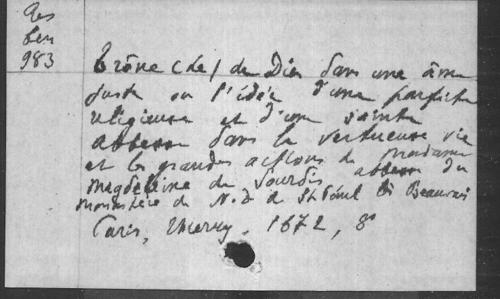 Res
8en
983
Trône (le) de Dieu dans une âme
juste ou l'idée d'une parfaite
religieuse et d'une sainte
abbesse dans la vertueuse vie
et les grandes actions de Madame
Magdeleine de Sourdis abbesse du
monastère de N. D. de St Paul lès Beauvais
Paris, Thierry, 1672, 8°